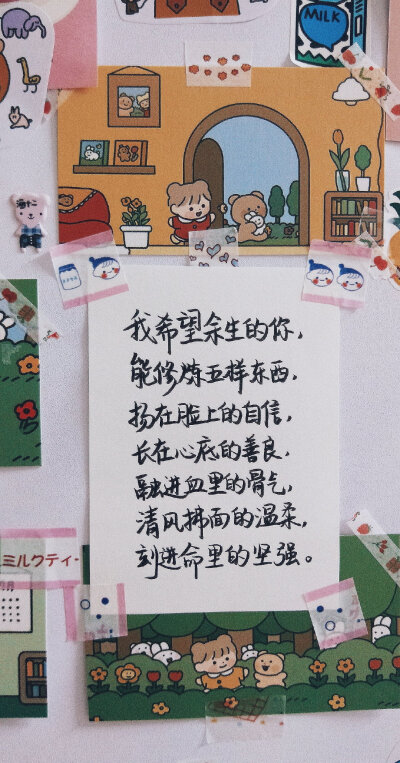 MILK
我希望余生的你,
能修炼五样东西,
扬在脸上的自信,
长在心底的善良,
融进血里的骨气,
清风拂面的温柔,
刻进命里的坚强。
ミルクティー